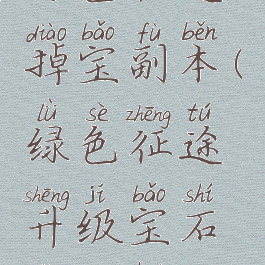 diào bǎo fù běn
掉宝副本(
lǜ sè zhēng tú
绿色征途
shēng jí bǎo shí
升级宝石